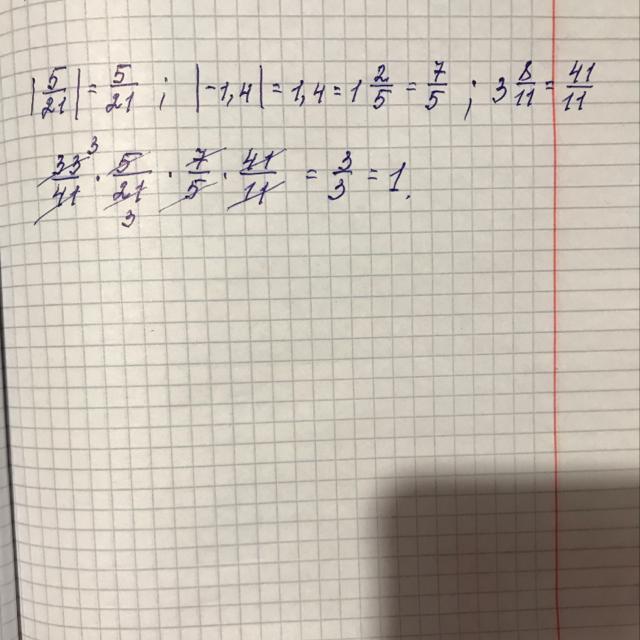 |5/21| = 5/21 ; |-1,4| = 1,4 = 1 2/5 = 7/5 ; 3 8/11 = 41/11
33/41 3 · 5/21 3 · 7/5 · 41/11 = 3/3 = 1.